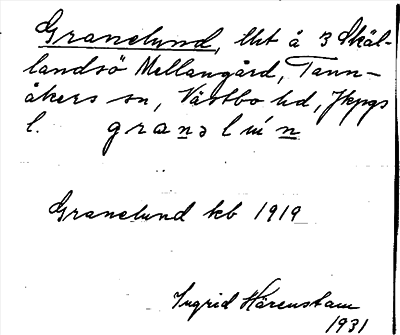 Granelund, lht å 3 Skäl-
landsö Mellangård, Tann-
åkers sn, Västbo hd, Jkpgs
l. granəlún̄
Granelund kb 1919
Ingrid Härenstam
1931